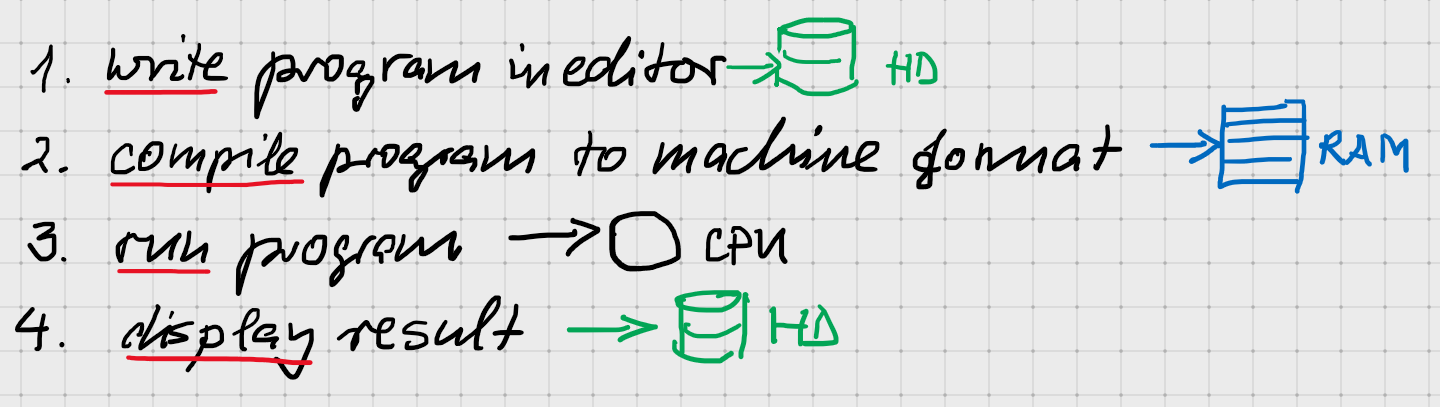 1. write program in editor → HD
2. compile program to machine format → RAM
3. run program → CPU
4. display result → HD